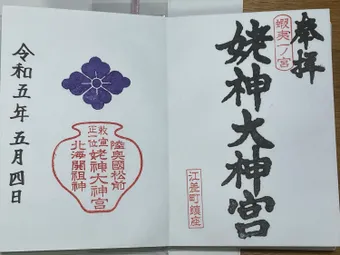 奉拝
蝦夷一ノ宮
姥神大神宮
江差町鎮座
陸奥國松前
勅宣正一位
姥神大神宮
北海開祖神
令和五年五月四日